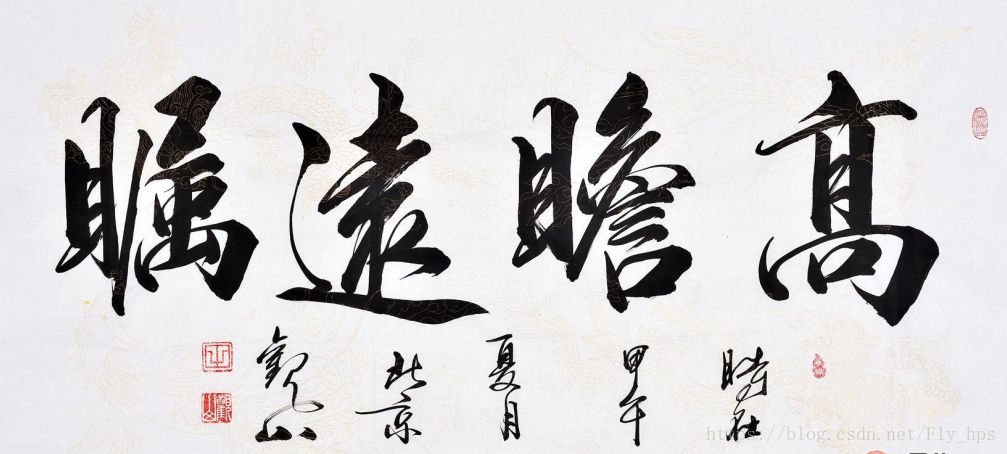 高瞻遠瞩
時在
甲午
夏月
北京
観山
https://blog.csdn.net/Fly_hps